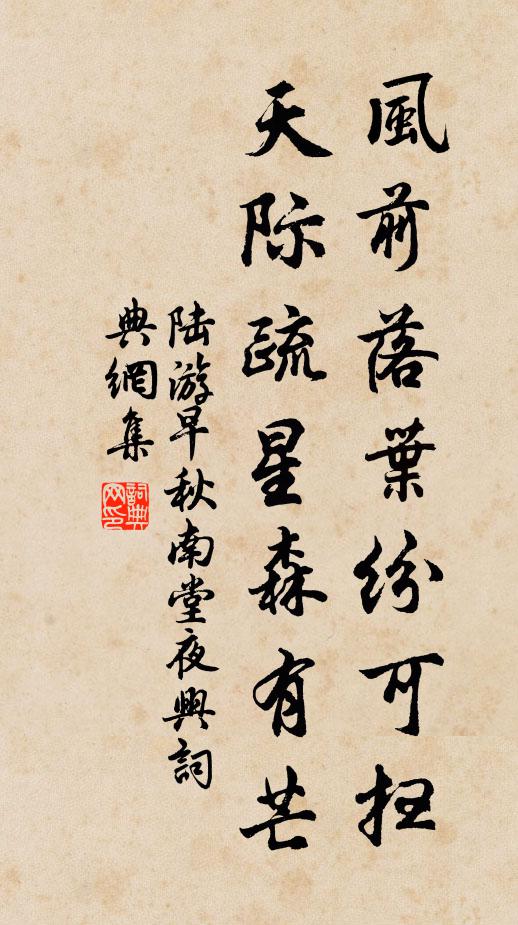 風前落葉紛可扫
天际疏星森有芒
陆游早秋南堂夜興詞
典網集
詞典网印